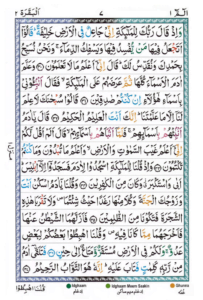 الٓمّٓ ١
٧
اَلْبَقَرَة ٢
وَاِذْ قَالَ رَبُّكَ لِلْمَلٰٓئِكَةِ اِنِّيْ جَاعِلٌ فِي الْاَرْضِ خَلِيْفَةً ؕ قَالُوْٓا
اَتَجْعَلُ فِيْهَا مَنْ يُّفْسِدُ فِيْهَا وَيَسْفِكُ الدِّمَآءَ ۚ وَنَحْنُ نُسَبِّحُ
بِحَمْدِكَ وَنُقَدِّسُ لَكَ ؕ قَالَ اِنِّيْٓ اَعْلَمُ مَا لَا تَعْلَمُوْنَ ۝ وَعَلَّمَ
اٰدَمَ الْاَسْمَآءَ كُلَّهَا ثُمَّ عَرَضَهُمْ عَلَى الْمَلٰٓئِكَةِ ۙ فَقَالَ اَنْۢبِـُٔوْنِيْ
بِاَسْمَآءِ هٰٓؤُلَآءِ اِنْ كُنْتُمْ صٰدِقِيْنَ ۝ قَالُوْا سُبْحٰنَكَ لَا عِلْمَ
لَنَآ اِلَّا مَا عَلَّمْتَنَا ؕ اِنَّكَ اَنْتَ الْعَلِيْمُ الْحَكِيْمُ ۝ قَالَ يٰٓاٰدَمُ
اَنْۢبِئْهُمْ بِاَسْمَآئِهِمْ ۚ فَلَمَّآ اَنْۢبَاَهُمْ بِاَسْمَآئِهِمْ ۙ قَالَ اَلَمْ اَقُلْ لَّكُمْ
اِنِّيْٓ اَعْلَمُ غَيْبَ السَّمٰوٰتِ وَالْاَرْضِ ۙ وَاَعْلَمُ مَا تُبْدُوْنَ وَمَا كُنْتُمْ
تَكْتُمُوْنَ ۝ وَاِذْ قُلْنَا لِلْمَلٰٓئِكَةِ اسْجُدُوْا لِاٰدَمَ فَسَجَدُوْٓا اِلَّآ اِبْلِيْسَ ؕ
اَبٰى وَاسْتَكْبَرَ ٭ۗ وَكَانَ مِنَ الْكٰفِرِيْنَ ۝ وَقُلْنَا يٰٓاٰدَمُ اسْكُنْ اَنْتَ
وَزَوْجُكَ الْجَنَّةَ وَكُلَا مِنْهَا رَغَدًا حَيْثُ شِئْتُمَا ۪ وَلَا تَقْرَبَا هٰذِهِ
الشَّجَرَةَ فَتَكُوْنَا مِنَ الظّٰلِمِيْنَ ۝ فَاَزَلَّهُمَا الشَّيْطٰنُ عَنْهَا
فَاَخْرَجَهُمَا مِمَّا كَانَا فِيْهِ ۪ وَقُلْنَا اهْبِطُوْا بَعْضُكُمْ لِبَعْضٍ
عَدُوٌّ ۚ وَلَكُمْ فِي الْاَرْضِ مُسْتَقَرٌّ وَّمَتَاعٌ اِلٰى حِيْنٍ ۝ فَتَلَقّٰٓى اٰدَمُ
مِنْ رَّبِّهٖ كَلِمٰتٍ فَتَابَ عَلَيْهِ ؕ اِنَّهٗ هُوَ التَّوَّابُ الرَّحِيْمُ ۝
قُلْنَا اهْبِطُوْا
Idghaam
Idghaam Meem Saakin
Ghunna